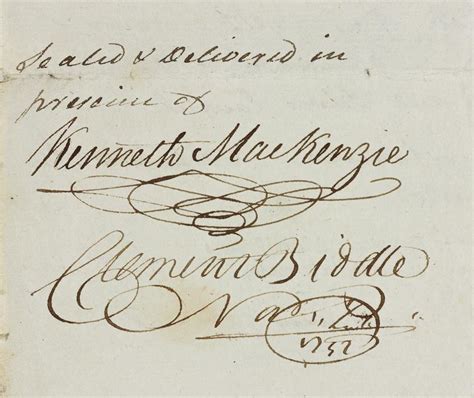 Sealed & Delivered in
presence of
Kenneth MacKenzie
Clement Biddle